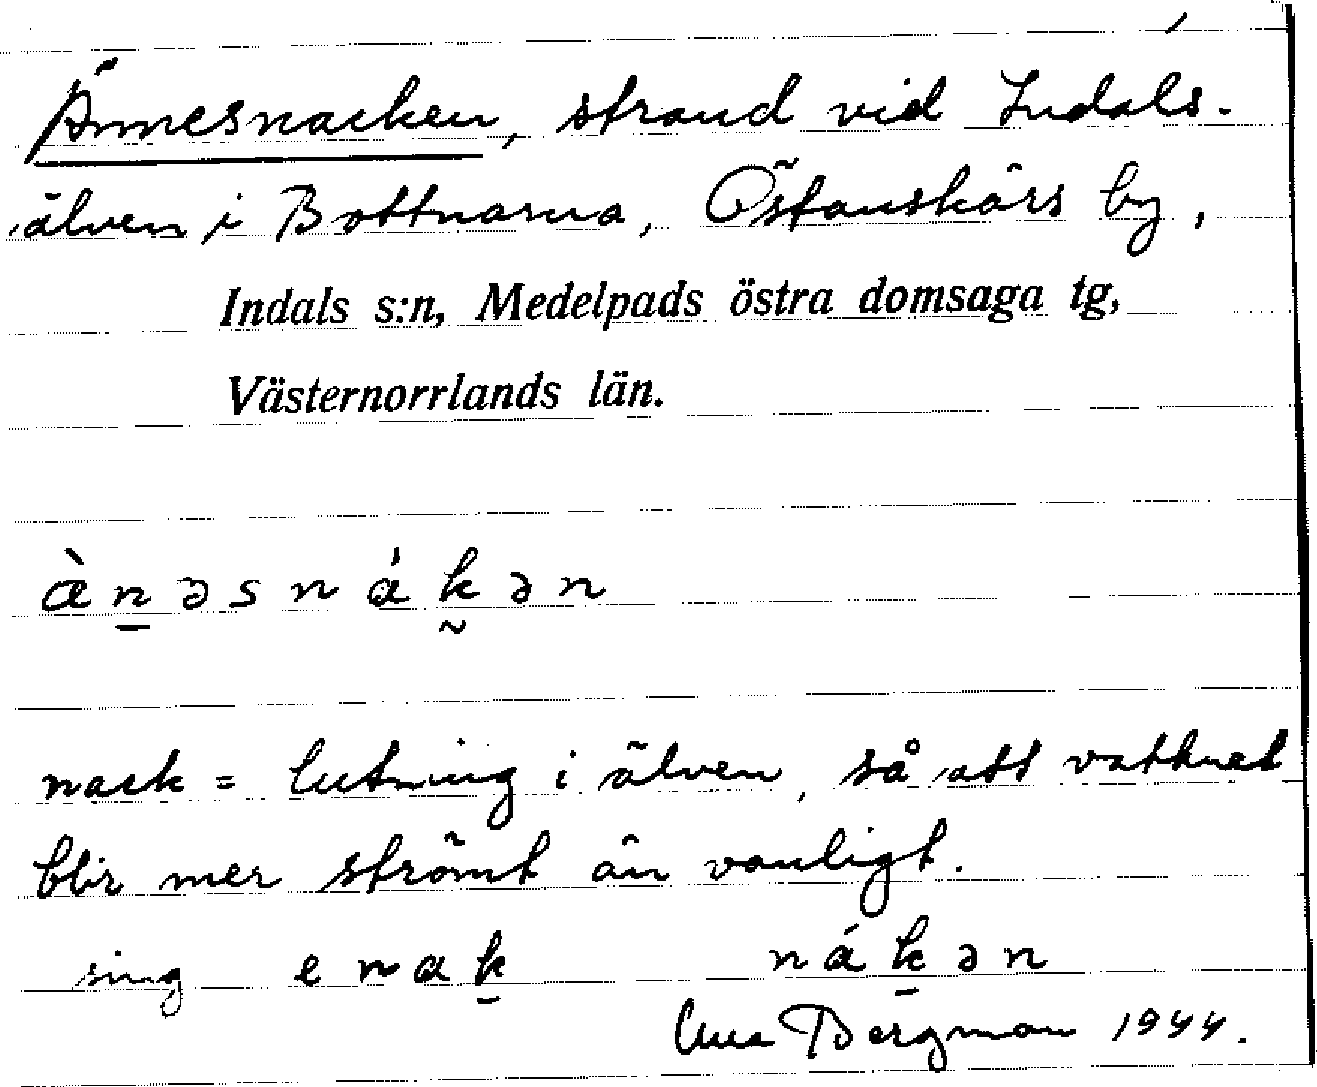 Ännesnacken, strand vid Indals-
älven i Bottnarna, Östanskärs by,
Indals s:n, Medelpads östra domsaga tg,
Västernorrlands län.
æ̀n̠əsnák̰ən
nack = lutning i älven, så att vattnet
blir mer strömt än vanligt.
sing enak̠ nák̠ən
Bergman 1944.